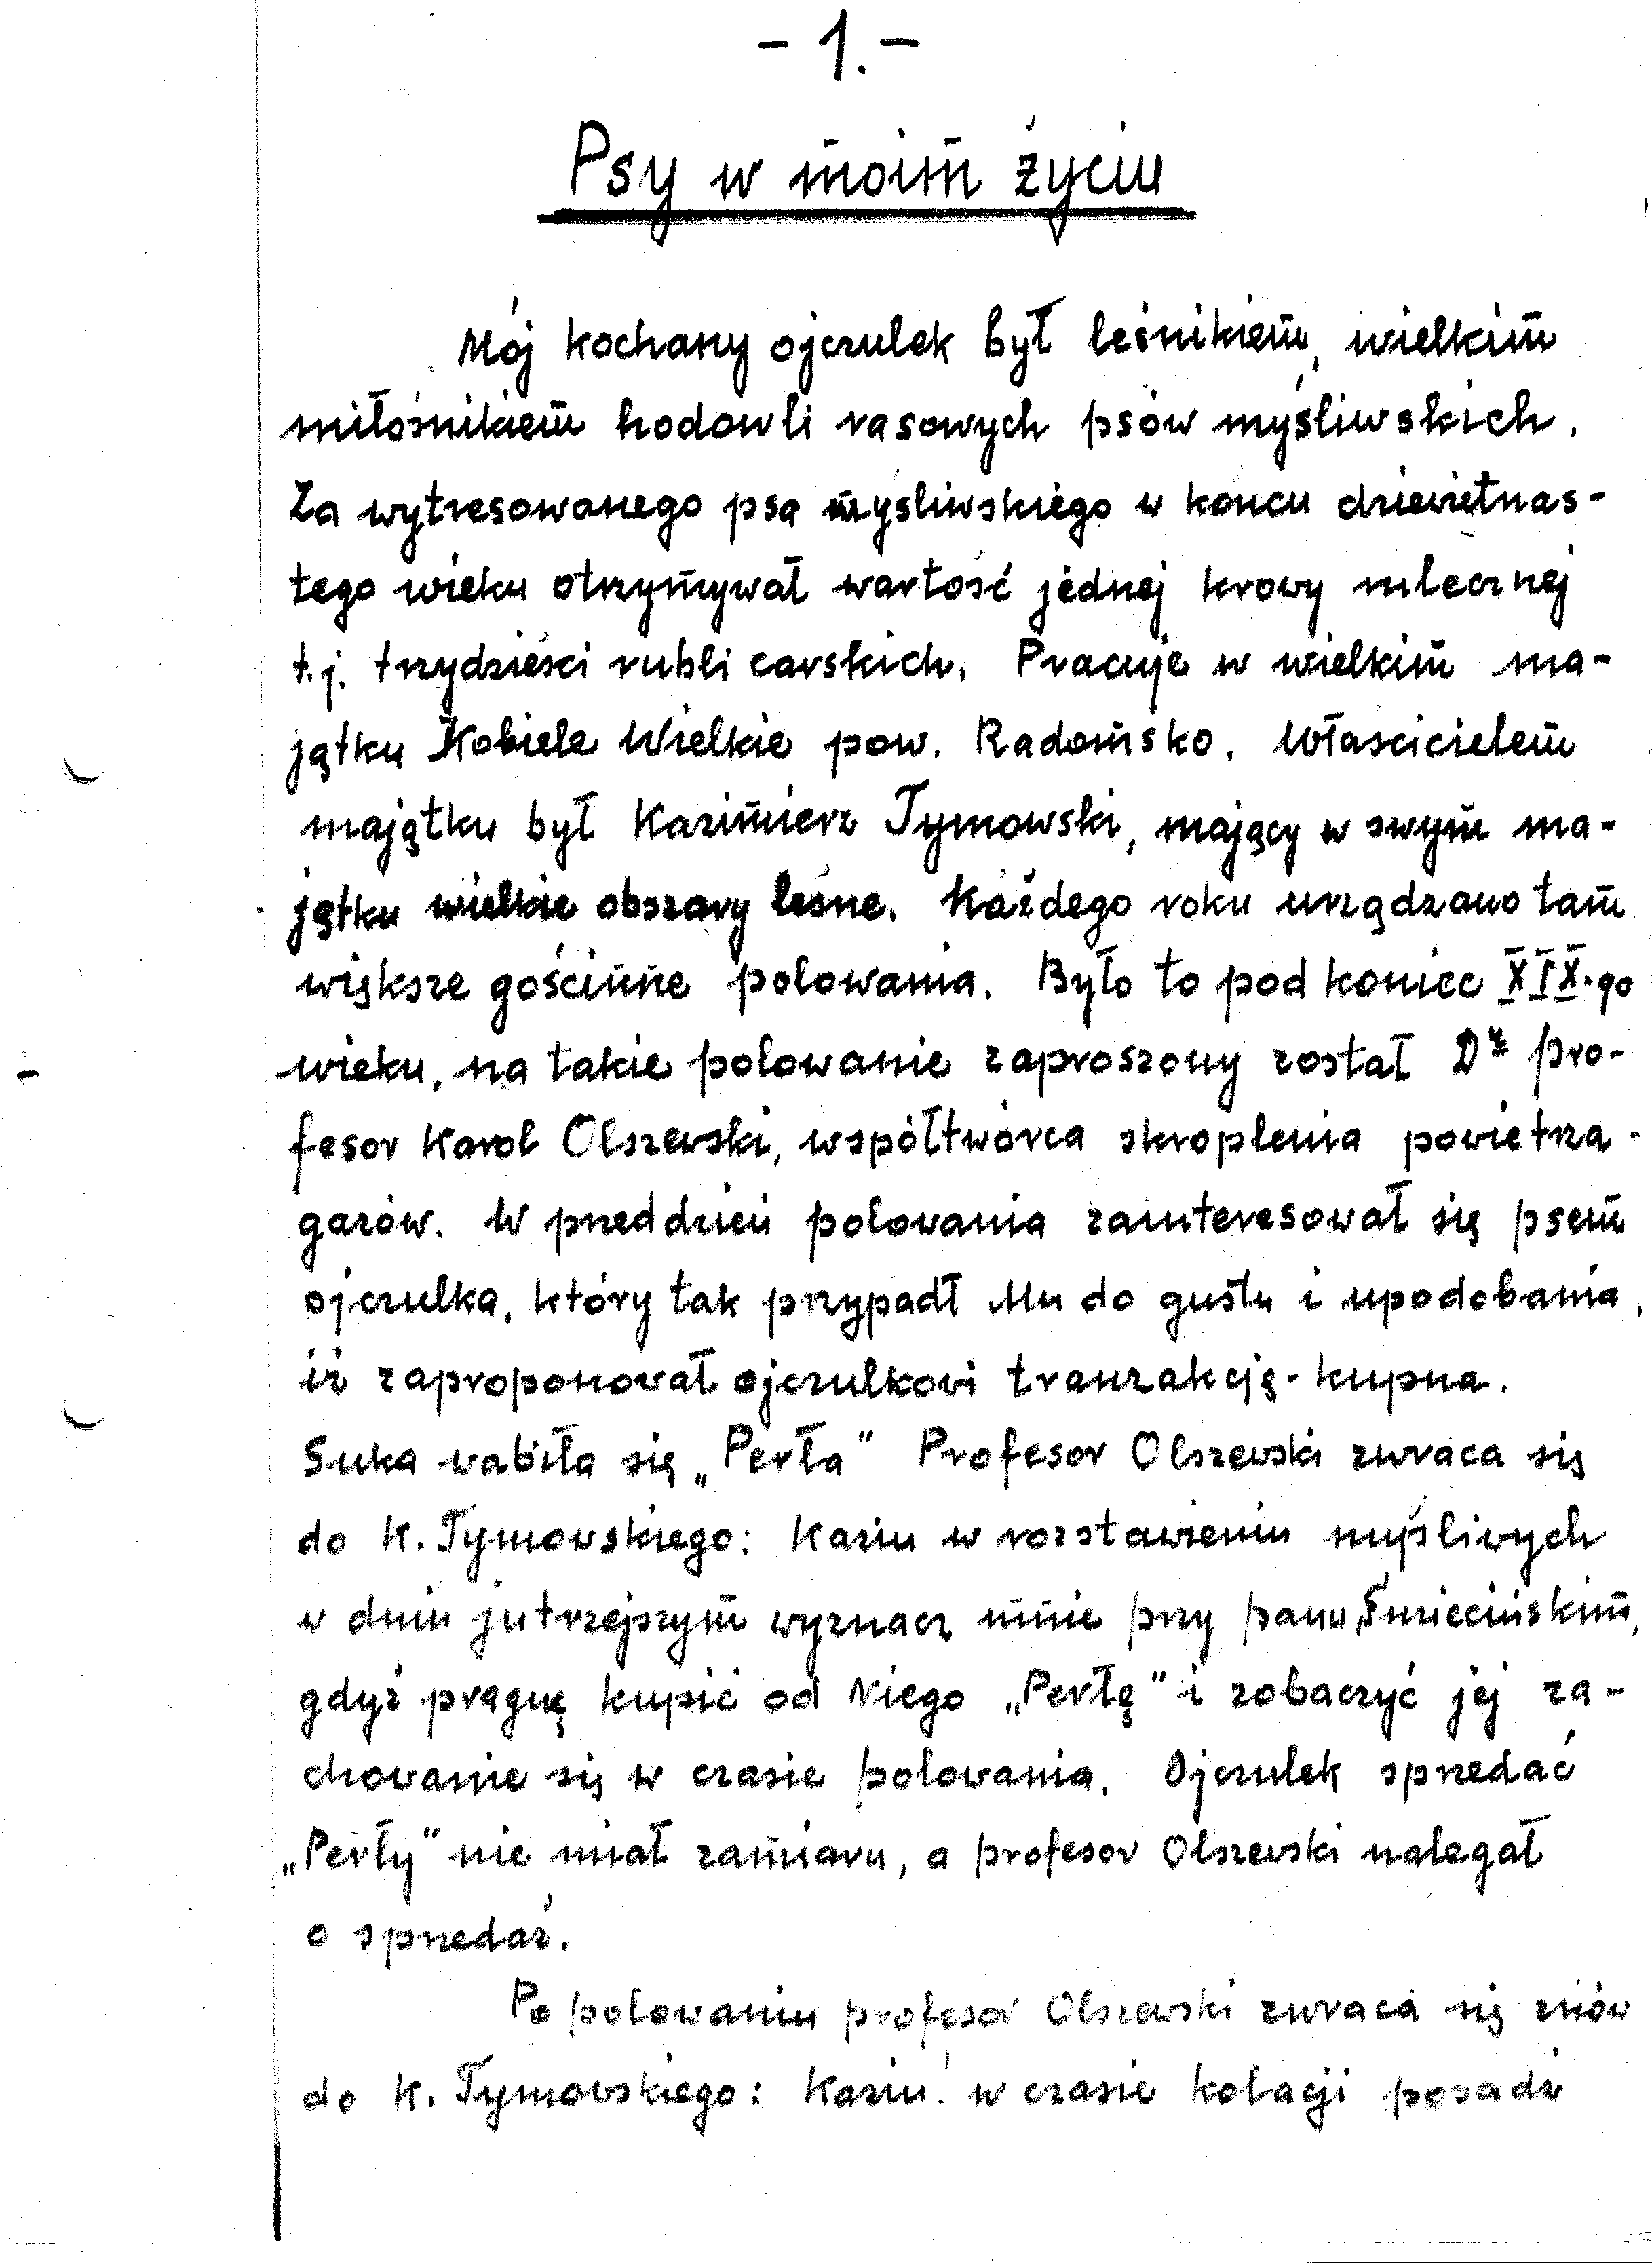 - 1. -
Psy w moim życiu
Mój kochany ojczulek był leśnikiem, wielkim
miłośnikiem hodowli rasowych psów myśliwskich.
Za wytresowanego psa myśliwskiego w końcu dziewiętnas-
tego wieku otrzymywał wartość jednej krowy mlecznej
t.j. trzydzieści rubli carskich. Pracuje w wielkim ma-
jątku Kobiele Wielkie pow. Radomsko. Właścicielem
majątku był Kazimierz Tymowski, mający w swym ma-
jątku wielkie obszary leśne. Każdego roku urządzano tam
większe gościnne polowania. Było to pod koniec XIX-go
wieku, na takie polowanie zaproszony został Dr pro-
fesor Karol Olszewski, współtwórca skroplenia powietrza -
gazów. W przeddzień polowania zainteresował się psem
ojczulka, który tak przypadł Mu do gustu i upodobania,
iż zaproponował ojczulkowi tranzakcję - kupna.
Suka wabiła się „Perła" Profesor Olszewski zwraca się
do K. Tymowskiego: Kaziu w rozstawieniu myśliwych
w dniu jutrzejszym wyznacz mnie przy panu Śmiecińskim,
gdyż pragnę kupić od Niego „Perłę" i zobaczyć jej za-
chowanie się w czasie polowania. Ojczulek sprzedać
„Perły" nie miał zamiaru, a profesor Olszewski nalegał
o sprzedaż.
Po polowaniu profesor Olszewski zwraca się znów
do K. Tymowskiego: Kaziu! w czasie kolacji posadź